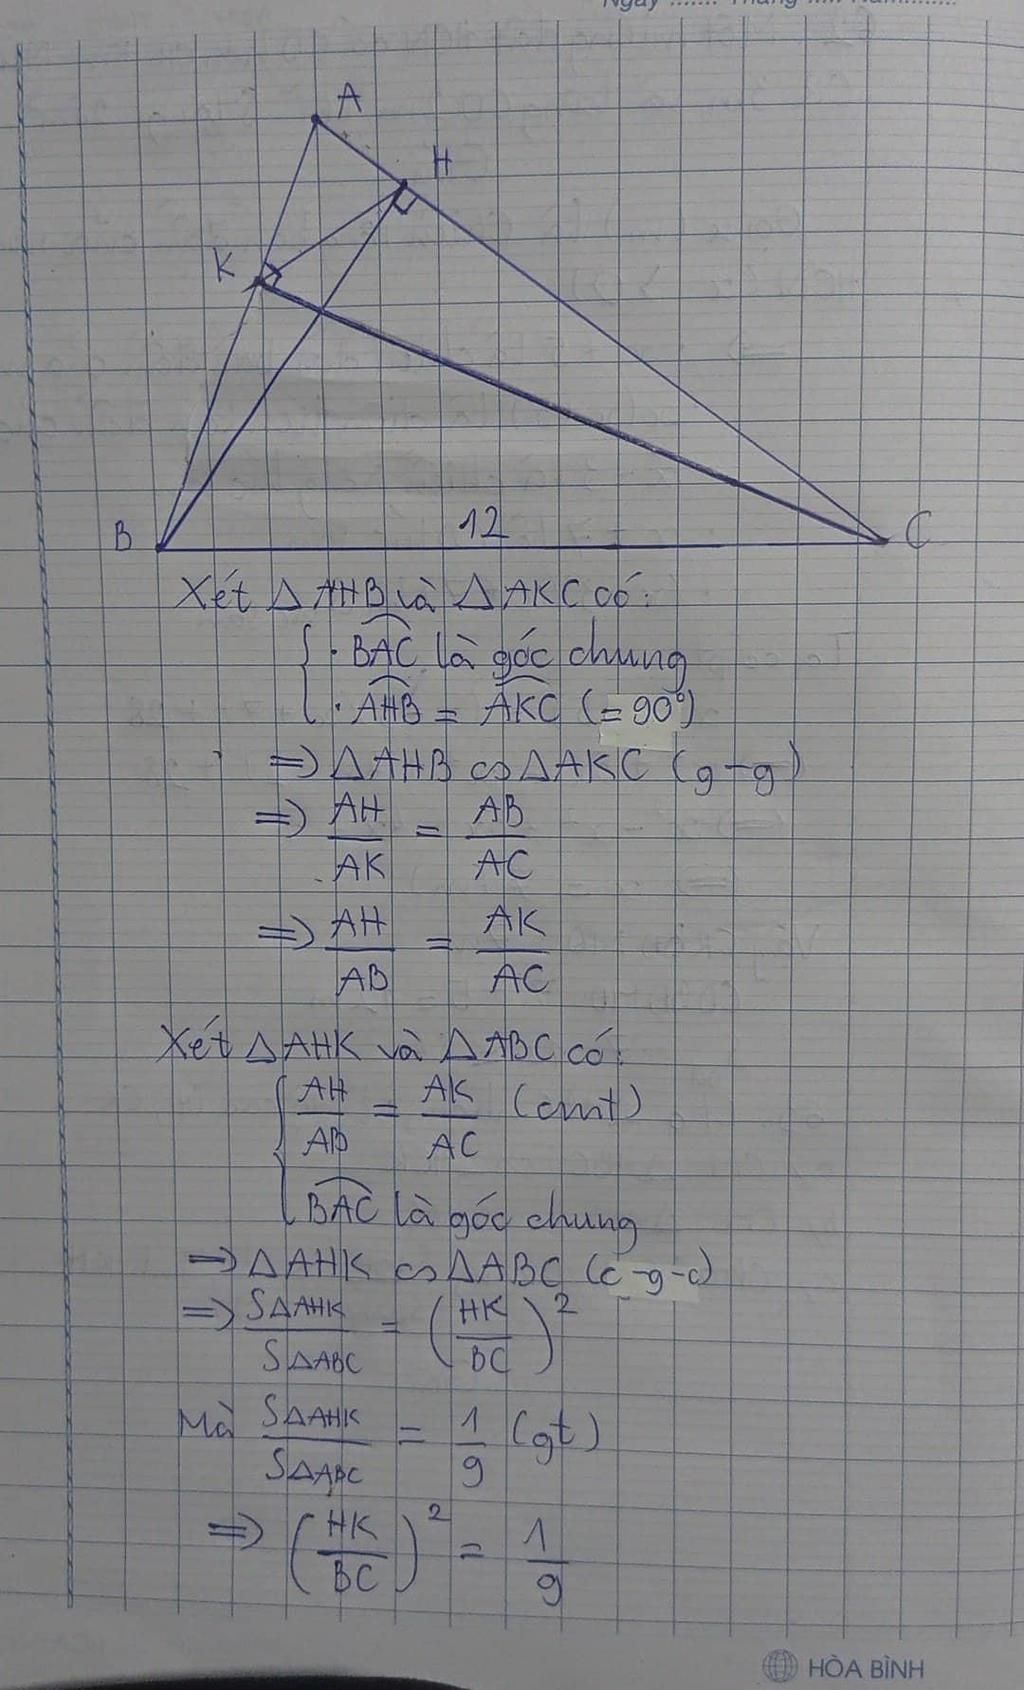 Ngày ....... Tháng ..... Năm.........
A
H
K
B
12
C
Xét △AHB và △AKC có:
{ · BAC là góc chung
· AHB = AKC (= 90°)
=> △AHB ∽ △AKC (g-g)
=> AH/AK = AB/AC
=> AH/AB = AK/AC
Xét △AHK và △ABC có:
{ AH/AB = AK/AC (cmt)
BAC là góc chung
=> △AHK ∽ △ABC (c-g-c)
=> S△AHK/S△ABC = (HK/BC)²
Mà S△AHK/S△ABC = 1/9 (gt)
=> (HK/BC)² = 1/9
HÒA BÌNH